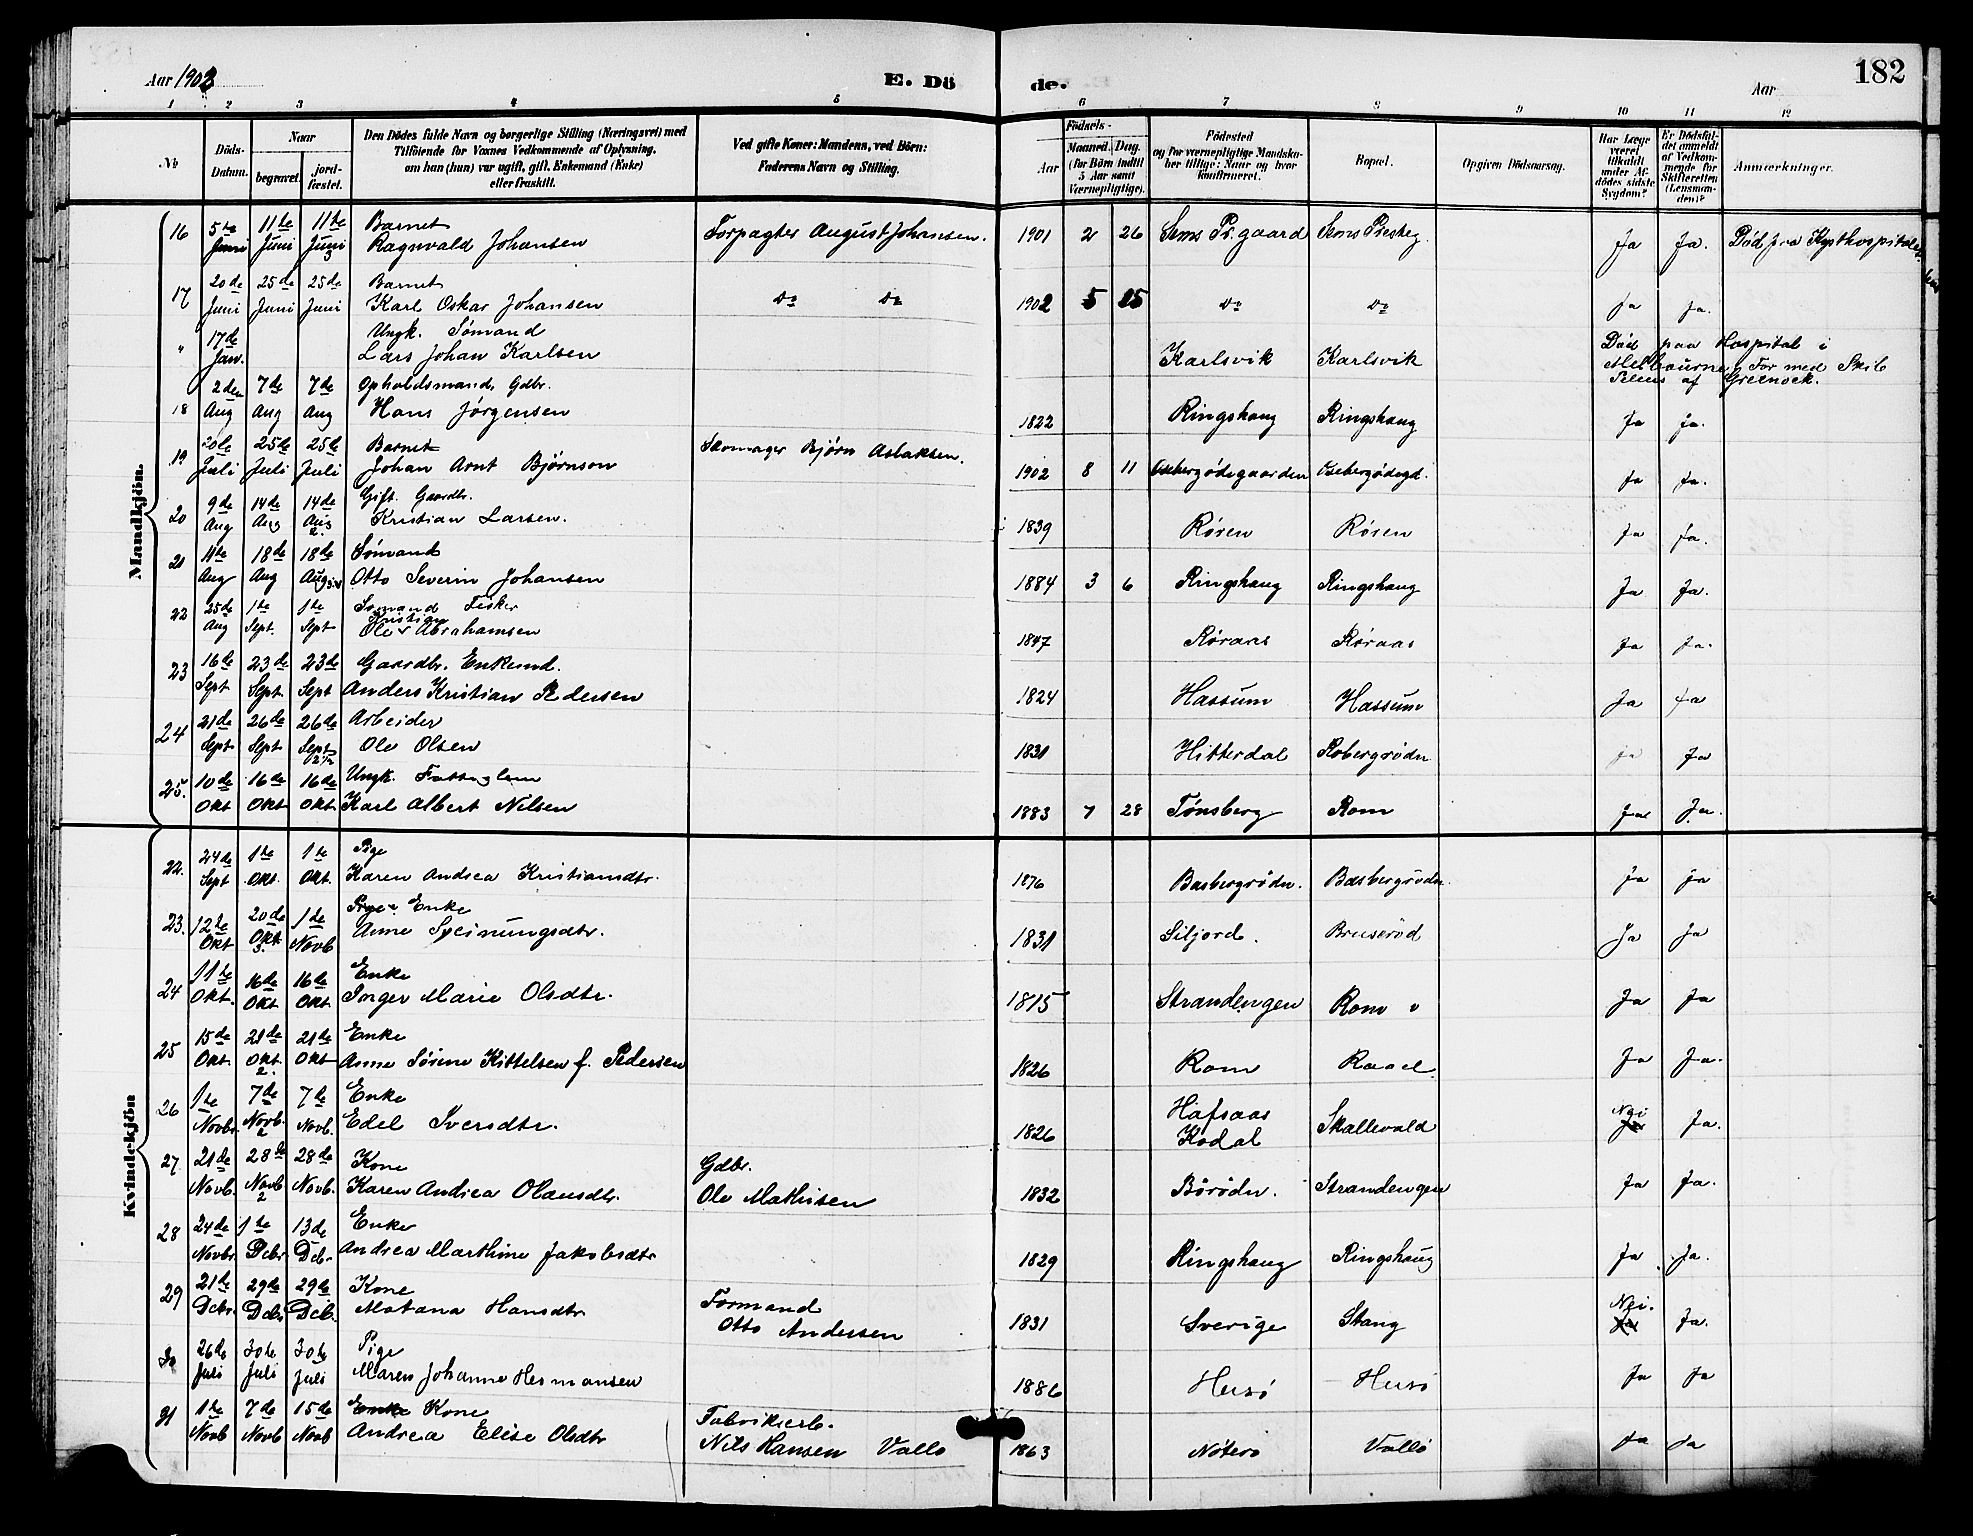 Aar 1902 E. Dö de. Aar 182
1 2 3 4 5 6 7 8 9 10 11 12
No
Döds-Datum.
Naar
begravet.
jord-fæstet.
Den Dödes fulde Navn og borgerlige Stilling (Næringsvei) med
Tilföiende for Voxnes Vedkommende af Oplysning,
om han (hun) var ugift, gift, Enkemand (Enke)
eller fraskilt.
Ved gifte Koner: Mandens, ved Börn:
Faderens Navn og Stilling.
Födsels-
Aar
Maaned. Dag.
(for Börn indtil
5 Aar samt
Værnepligtige).
Födested
og for værnepligtige Mandska-
ber tillige: Naar og hvor
konfirmeret.
Bopæl.
Opgiven Dödsaarsag.
Har Læge
været
tilkaldt
under Af-
dödes sidste
Sygdom?
Er Dödsfal-
det anmeldt
af Vedkom-
mende for
Skifteretten
(Lensman-
den)?
Anmærkninger.
Mandkjön.
16 5te 11te 11te Barnet
Juni Juni Juni Ragnvald Johansen Forpagter August Johansen. 1901 2 26 Sems Pr.gaard Sems Presteg. Ja Ja. Død fra Kysthospitalet
17 20de 25de 25de Barnet
Juni Juni Juni Karl Oskar Johansen Do Do 1902 5 25 Do Do Ja Ja.
" 17de Ungk. Sømand
Jan. Lars Johan Karlsen Karlsvik Karlsvik Død paa Hospital i
Melbourne, For med Skib
Peleus af Greenock.
2den 7de 7de Opholdsmand, Gdbr.
18 Aug Aug Aug Hans Jørgensen 1822 Ringshaug Ringshaug Ja Ja.
19 20de 25de 25de Barnet
Juli Juli Juli Johan Arnt Bjørnson Skomager Bjørn Aslaksen. 1902 8 11 Osebergødegaarden Osebergødegd. Ja Ja.
20 9de 14de 14de Gift. Gaardbr.
Aug Aug Aug Kristian Larsen. 1839 Røren Røren Ja Ja.
21 11te 18de 18de Sømand
Aug Aug Aug Otto Severin Johansen 1884 3 6 Ringshaug Ringshaug Ja Ja.
22 25de 1te 1te Sømand Fisker
Aug Sept. Sept Ole Kristian Abrahamsen 1847 Røraas Røraas Ja Ja.
23 16de 23de 23de Gaardbr. Enkemd.
Sept Sept Sept Anders Kristian Pedersen 1824 Hassum Hassum Ja Ja
24 21de 26de 26de Arbeider
Sept Sept Sept Ole Olsen 1831 Hitterdal Robergrødn Ja Ja
25. 10de 16de 16de Ungk. Fattiglem
Okt Okt Okt. Karl Albert Nilsen 1883 7 28 Tønsberg Rom Ja Ja.
Kvindekjön
22. 24de 1te 1te Pige
Sept Okt. Okt. Karen Andrea Kristiansdtr. 1876 Basbergrødn. Basbergrødn. Ja Ja
23. 12te 20de 1te Pige Enke
Okt Okt. Novb Anne Sveinungsdtr. 1831 Siljord. Bruserød Ja Ja
24 11te 16de 16de Enke
Okt. Okt Okt Inger Marie Olsdtr. 1815 Strandengen Rom Ja Ja
25 15de 21de 21de Enke
Okt. Okt. Okt Anne Sørine Kittelsen f. Pedersen 1826 Rom Raael Ja Ja.
26 1te 7de 7de Enke
Novbr. Novb. Novb. Edel Iversdtr. 1826 Hafsaas Kodal Skallevald Nei Ja Ja.
27 21de 28de 28de Kone Gdbr.
Novb. Novb Novb. Karen Andrea Olausdtr. Ole Mathisen 1832 Børødn. Strandengen Ja Ja.
28 24de 1te 13de Enke
Novbr. Dcbr Dcbr Andrea Marthine Jakobsdtr 1829 Ringshaug Ringshaug Ja Ja.
29 21de 29de 29de Kone Formand
Dcbr. Dcb Dcb. Matana Hansdtr Otto Andersen 1831 Sverige Stang Nei. Ja Ja.
30 26de 30te 30te Pige
Juli Juli Juli Maren Johanne Hermansen 1886 Husø Husø Ja Ja
31 1te 7de 15de Enke Kone Fabrikserb.
Novb Novb Novb Andrea Elise Olsdtr Nils Hansen Vallø 1863 Nøterø Vallø Ja Ja